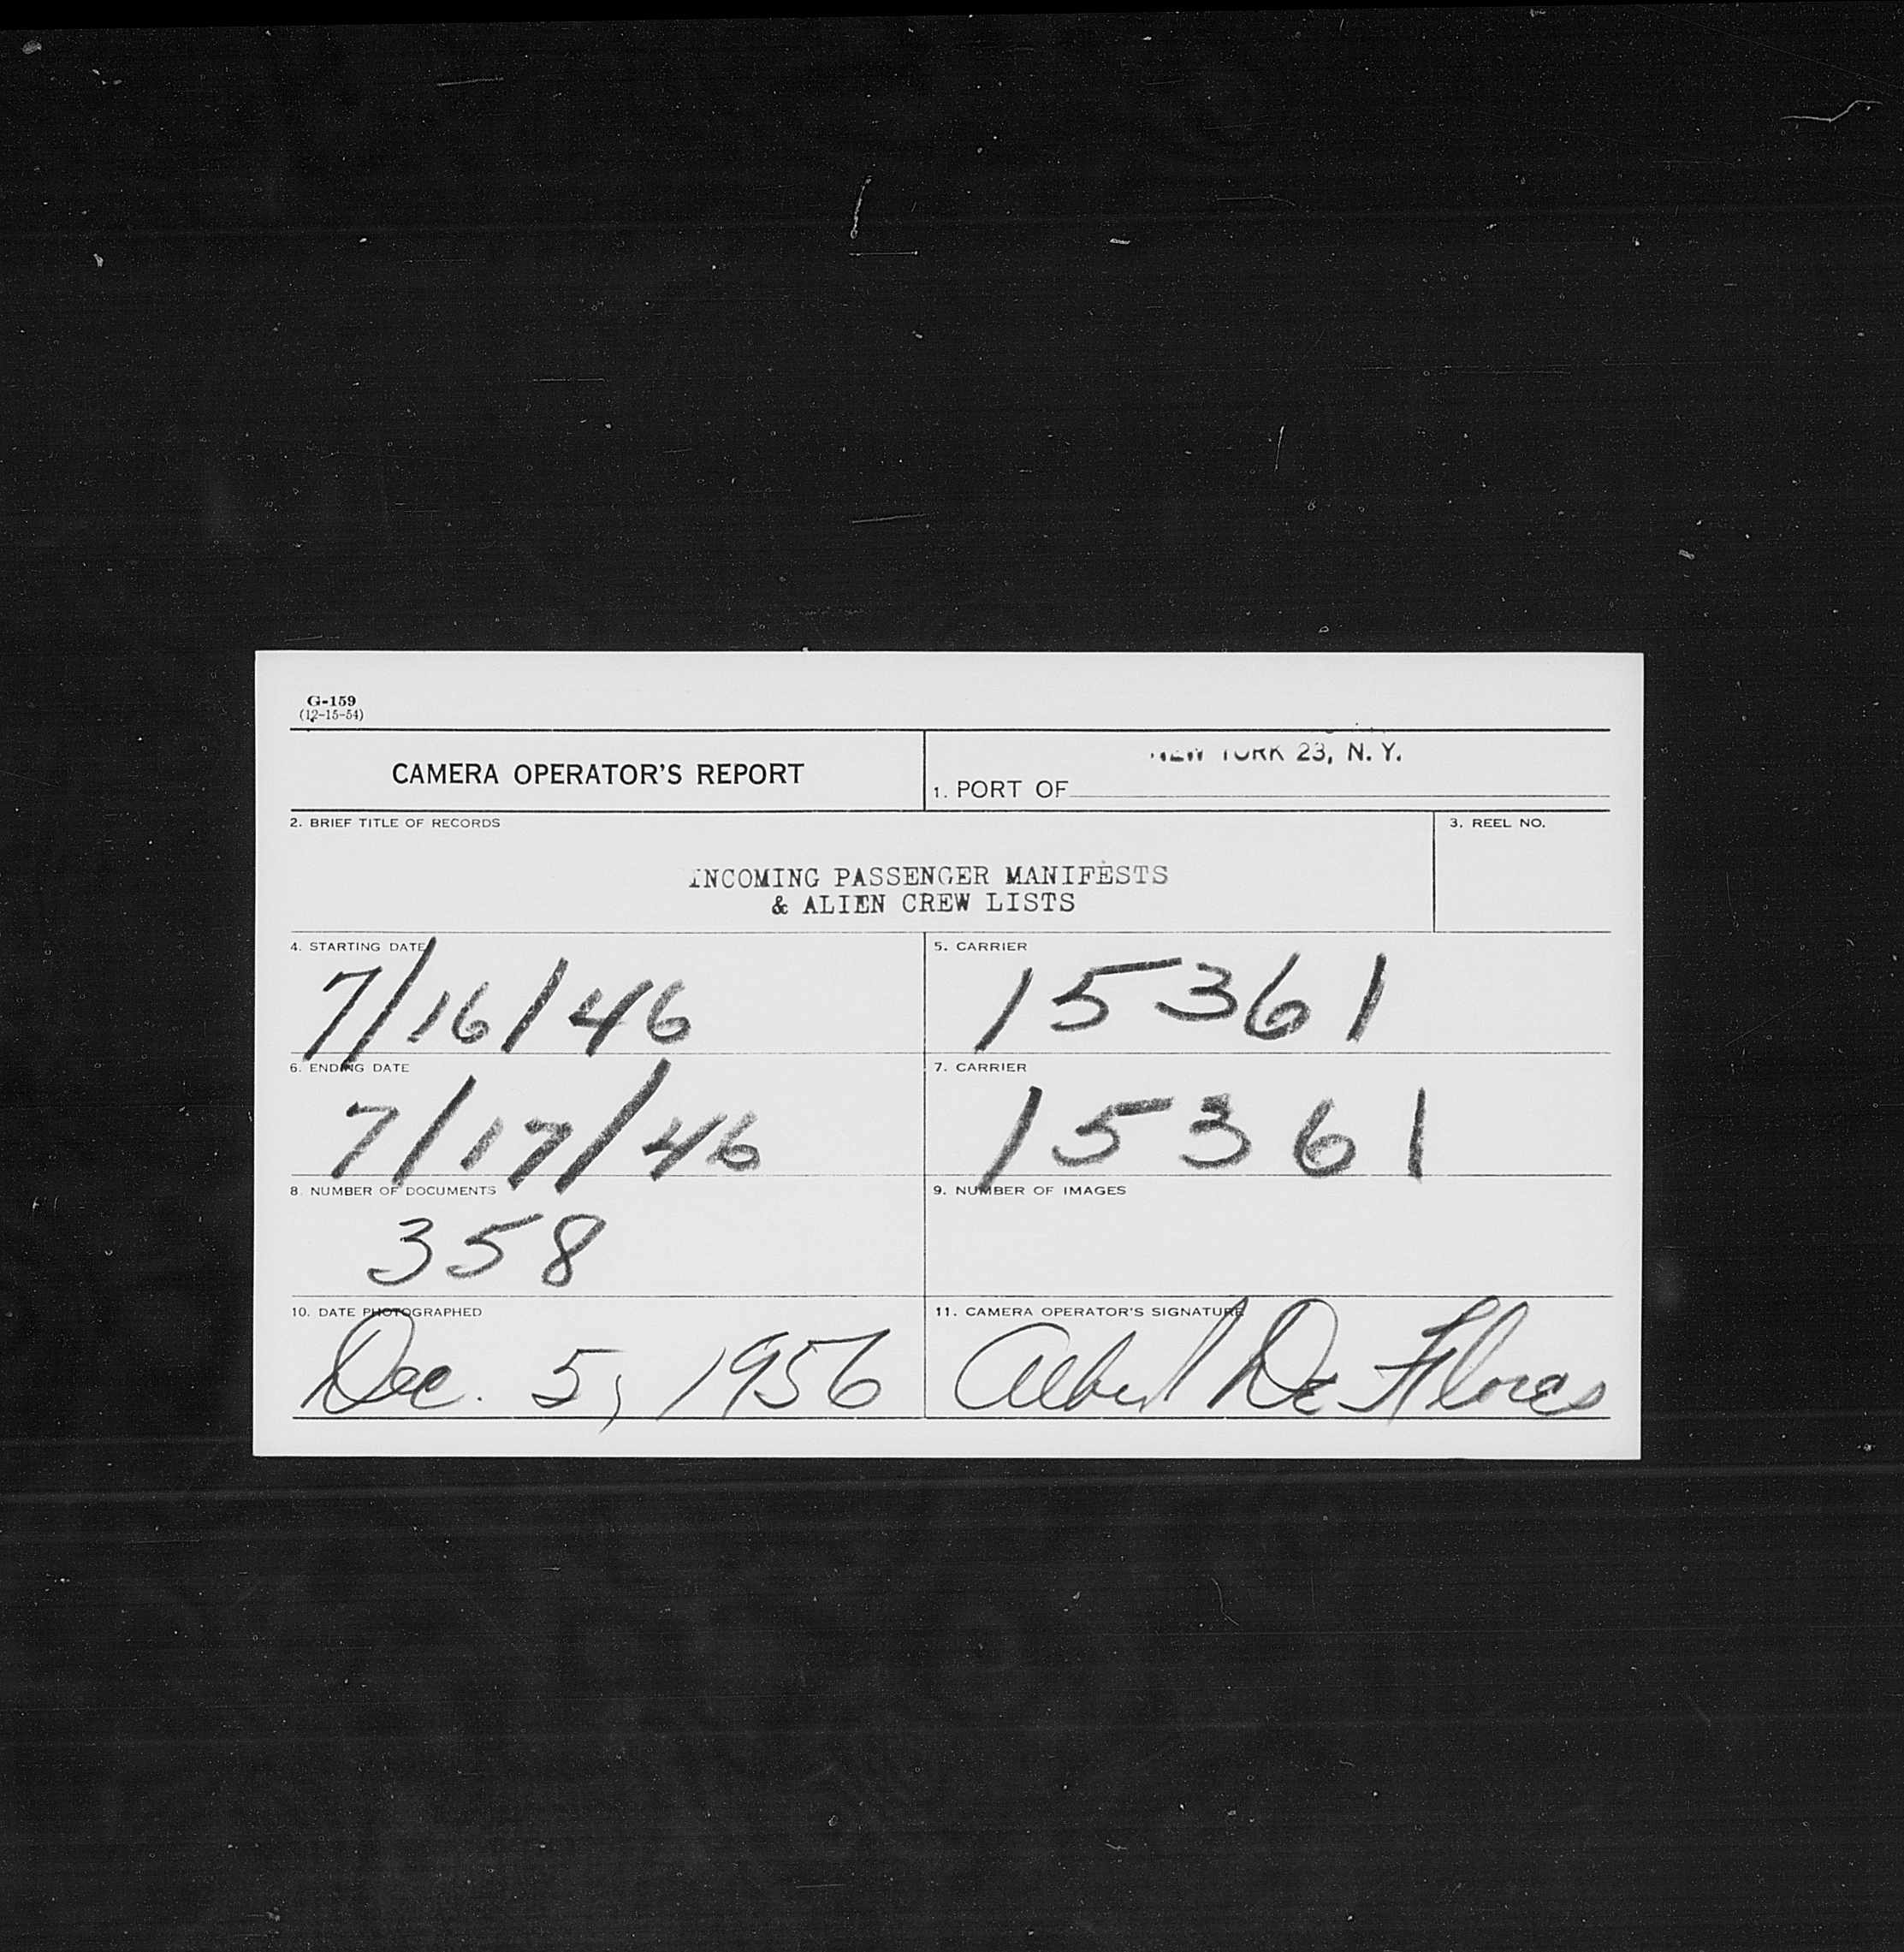 G-159
(12-15-54)
CAMERA OPERATOR'S REPORT
NEW YORK 23, N. Y.
1. PORT OF
2. BRIEF TITLE OF RECORDS
3. REEL NO.
INCOMING PASSENGER MANIFESTS
& ALIEN CREW LISTS
4. STARTING DATE
7/16/46
5. CARRIER
15361
6. ENDING DATE
7/17/46
7. CARRIER
15361
8. NUMBER OF DOCUMENTS
358
9. NUMBER OF IMAGES
10. DATE PHOTOGRAPHED
Dec. 5, 1956
11. CAMERA OPERATOR'S SIGNATURE
Albert De Flores